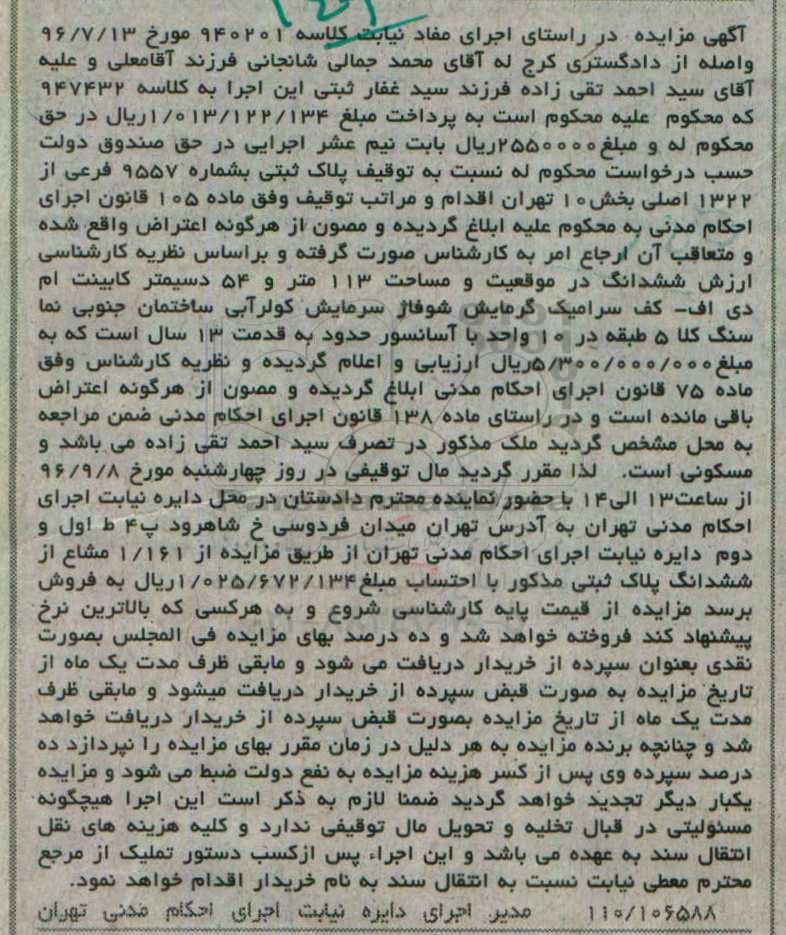 آگهی مزایده در راستای اجرای مفاد نیابت کلاسه ۹۴۰۲۰۱ مورخ ۹۶/۷/۱۳
واصله از دادگستری کرج له آقای محمد جمالی شانجانی فرزند آقامعلی و علیه
آقای سید احمد تقی زاده فرزند سید غفار ثبتی این اجرا به کلاسه ۹۴۷۴۳۲
که محکوم علیه محکوم است به پرداخت مبلغ ۱/۰۱۳/۱۲۲/۱۳۴ریال در حق
محکوم له و مبلغ۲۵۵۰۰۰۰ریال بابت نیم عشر اجرایی در حق صندوق دولت
حسب درخواست محکوم له نسبت به توقیف پلاک ثبتی بشماره ۹۵۵۷ فرعی از
۱۳۲۲ اصلی بخش۱۰ تهران اقدام و مراتب توقیف وفق ماده ۱۰۵ قانون اجرای
احکام مدنی به محکوم علیه ابلاغ گردیده و مصون از هرگونه اعتراض واقع شده
و متعاقب آن ارجاع امر به کارشناس صورت گرفته و براساس نظریه کارشناسی
ارزش ششدانگ در موقعیت و مساحت ۱۱۳ متر و ۵۴ دسیمتر کابینت ام
دی اف- کف سرامیک گرمایش شوفاژ سرمایش کولرآبی ساختمان جنوبی نما
سنگ کلا ۵ طبقه در ۱۰ واحد با آسانسور حدود به قدمت ۱۳ سال است که به
مبلغ۵/۳۰۰/۰۰۰/۰۰۰ریال ارزیابی و اعلام گردیده و نظریه کارشناس وفق
ماده ۷۵ قانون اجرای احکام مدنی ابلاغ گردیده و مصون از هرگونه اعتراض
باقی مانده است و در راستای ماده ۱۳۸ قانون اجرای احکام مدنی ضمن مراجعه
به محل مشخص گردید ملک مذکور در تصرف سید احمد تقی زاده می باشد و
مسکونی است. لذا مقرر گردید مال توقیفی در روز چهارشنبه مورخ ۹۶/۹/۸
از ساعت۱۳ الی۱۴ با حضور نماینده محترم دادستان در محل دایره نیابت اجرای
احکام مدنی تهران به آدرس تهران میدان فردوسی خ شاهرود پ۴ ط اول و
دوم دایره نیابت اجرای احکام مدنی تهران از طریق مزایده از ۱/۱۶۱ مشاع از
ششدانگ پلاک ثبتی مذکور با احتساب مبلغ۱/۰۲۵/۶۷۲/۱۳۴ریال به فروش
برسد مزایده از قیمت پایه کارشناسی شروع و به هرکسی که بالاترین نرخ
پیشنهاد کند فروخته خواهد شد و ده درصد بهای مزایده فی المجلس بصورت
نقدی بعنوان سپرده از خریدار دریافت می شود و مابقی ظرف مدت یک ماه از
تاریخ مزایده به صورت قبض سپرده از خریدار دریافت میشود و مابقی ظرف
مدت یک ماه از تاریخ مزایده بصورت قبض سپرده از خریدار دریافت خواهد
شد و چنانچه برنده مزایده به هر دلیل در زمان مقرر بهای مزایده را نپردازد ده
درصد سپرده وی پس از کسر هزینه مزایده به نفع دولت ضبط می شود و مزایده
یکبار دیگر تجدید خواهد گردید ضمنا لازم به ذکر است این اجرا هیچگونه
مسئولیتی در قبال تخلیه و تحویل مال توقیفی ندارد و کلیه هزینه های نقل
انتقال سند به عهده می باشد و این اجراء پس ازکسب دستور تملیک از مرجع
محترم معطی نیابت نسبت به انتقال سند به نام خریدار اقدام خواهد نمود.
۱۱۰/۱۰۶۵۸۸ مدیر اجرای دایره نیابت اجرای احکام مدنی تهران